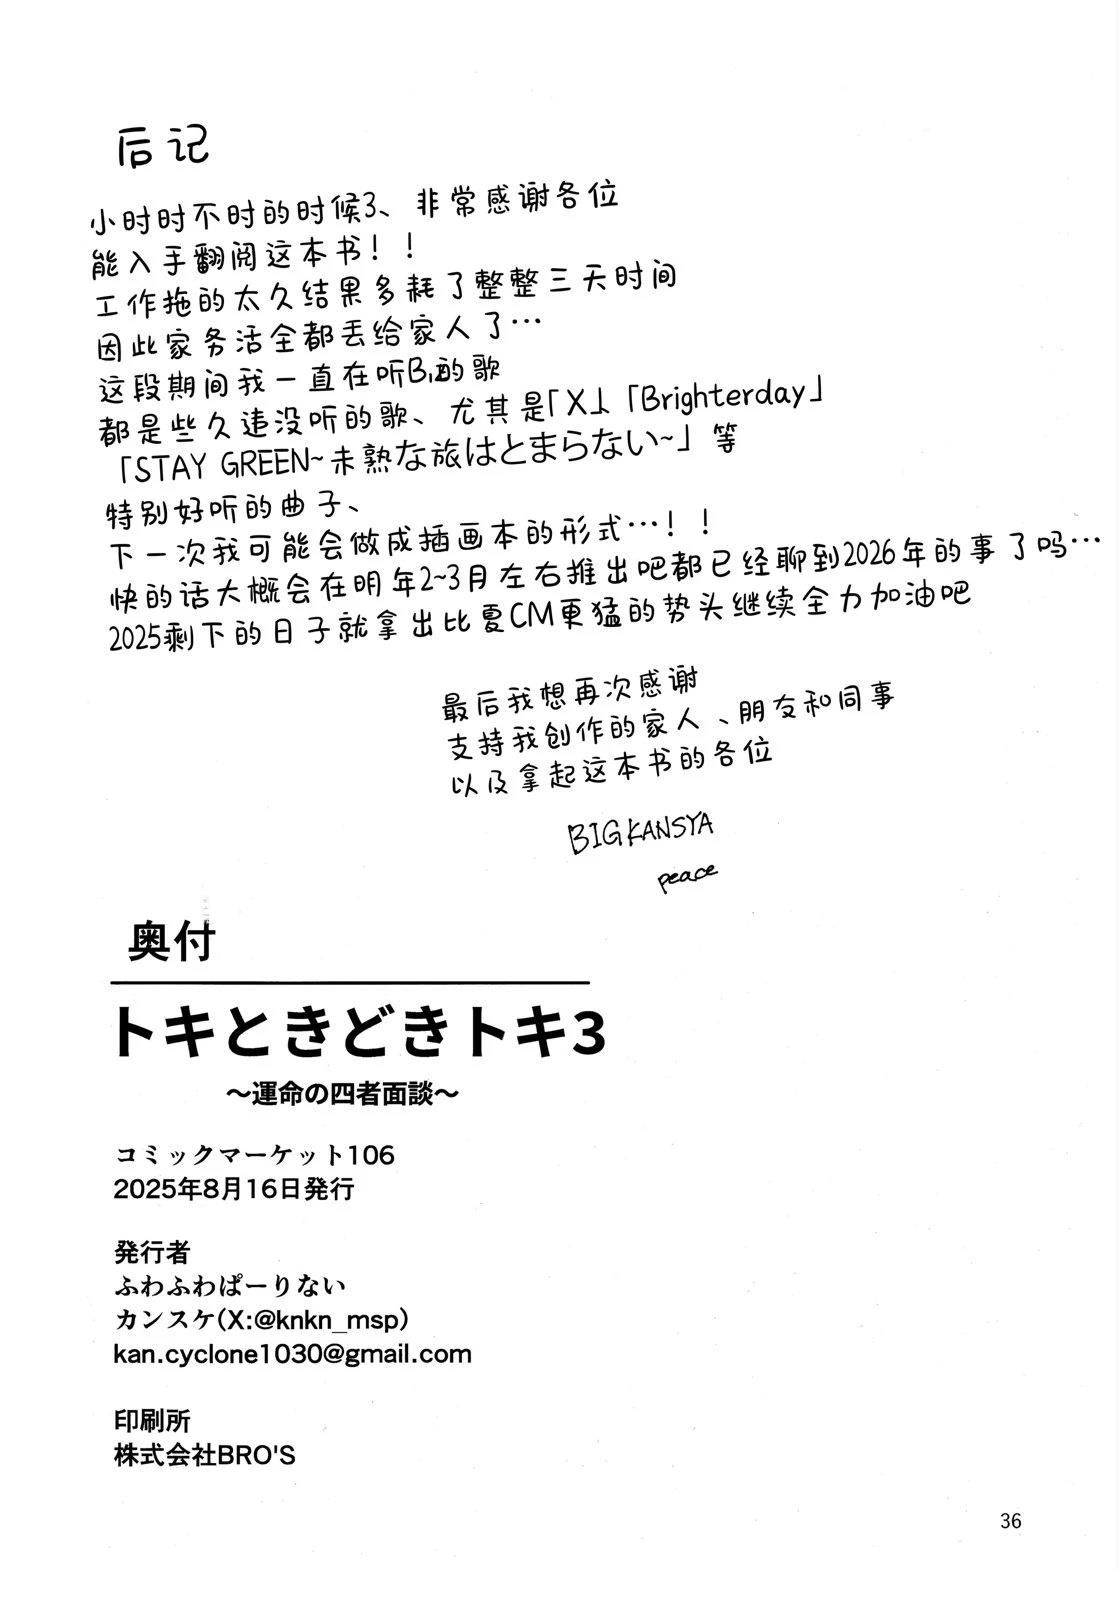 后记
小时时不时的时候3、非常感谢各位
能入手翻阅这本书！！
工作拖的太久结果多耗了整整三天时间
因此家务活全都丢给家人了…
这段期间我一直在听B'z的歌
都是些久违没听的歌、尤其是「X」、「Brighterday」
「STAY GREEN~未熟な旅はとまらない~」等
特别好听的曲子、
下一次我可能会做成插画本的形式…！！
快的话大概会在明年2~3月左右推出吧都已经聊到2026年的事了吗…
2025剩下的日子就拿出比夏CM更猛的势头继续全力加油吧
最后我想再次感谢
支持我创作的家人、朋友和同事
以及拿起这本书的各位
BIGKANSYA
peace
奥付
トキときどきトキ3
～運命の四者面談～
コミックマーケット106
2025年8月16日発行
発行者
ふわふわぱーりない
カンスケ(X:@knkn_msp)
kan.cyclone1030@gmail.com
印刷所
株式会社BRO'S
36